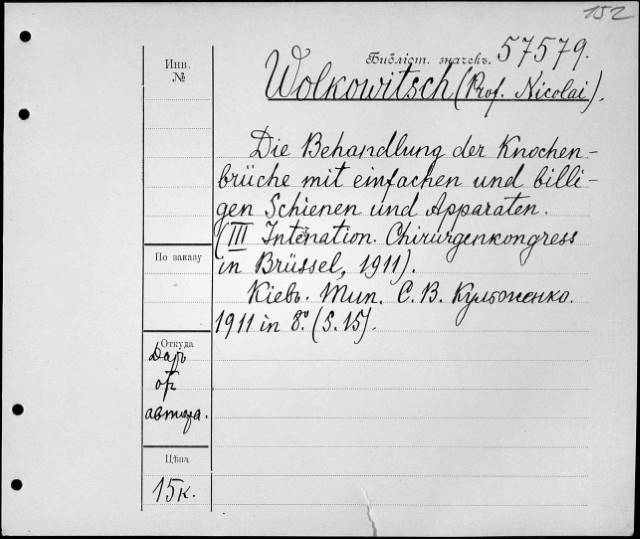 152
Библіот. значекъ. 57579.
Инв.
№
Wolkowitsch (Prof. Nicolai).
Die Behandlung der Knochen-
brüche mit einfachen und billi-
gen Schienen und Apparaten.
(III Internation. Chirurgenkongress
in Brüssel, 1911).
По заказу
Кіевъ. Тип. С. В. Кульженко.
1911 in 8.° (S. 15).
Откуда
Даръ
от
автора.
Цѣна
15 к.